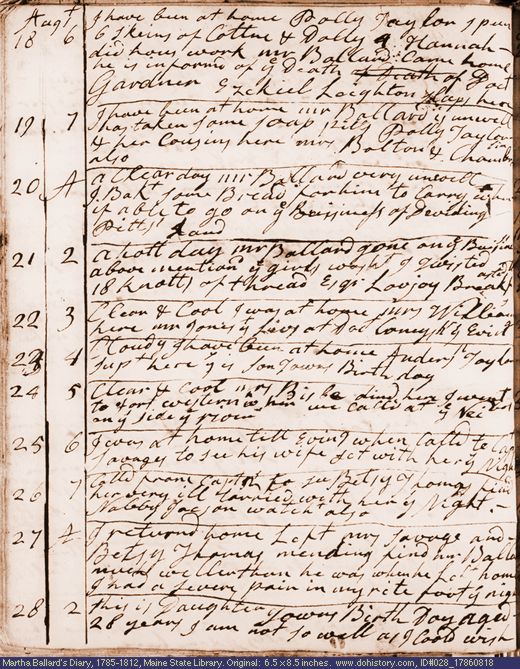 Augt
18 6 I have been at home Polly Taylor spun
6 skeins of Cottne & Dolly 4 Hannah
did hous work mr Ballard Came home
he is informd of ye Death of Doct
Gardner Ezekiel Leighton sleeps here
19 7 I have been at home mr Ballard is unwell
has taken some soap pills Polly Taylor
& her Cousins here mrs Bolton &
also
20 A a Clear day mr Ballard very unwell
I Bakt some Bread for him to Carry
if able to go on ye Buissiness of Deviding
Pitts Land
21 2 a hott day mr Ballard gone on ye Buisin
above mention ye girls washt I Twisted
18 knotts of thread Esqr Lovjoy Breakf
22 3 Clear & Cool I was at home mrs William
here mr Jones
23 4 Cloudy I have been at home Anders Taylor
supt here ye is son Towns Birth day
24 5 Clear & Cool mrs dind here I went
to fort western with her we Calld at ye
on ys side ye river
25 6 I was at home till Evng when Calld to
Savages to see his wife set with her ys Night
26 7 Calld from Capt to see Betsy Thomas find
her very ill tarried with her ys Night
Jackson watcht also
27 A I returnd home Left mrs Savage and
Betsy Thomas mending find mr Ballard
much weller than he was when he Left home
I had a severe pain in my rite foot ys night
28 2 this is Daughter Towns Birth Day aged
28 years I am not so well as I Could wish
Martha Ballard's Diary, 1785-1812, Maine State Library. Original: 6.5 x 8.5 inches. www.dohistory.com, ID#I028_17860818